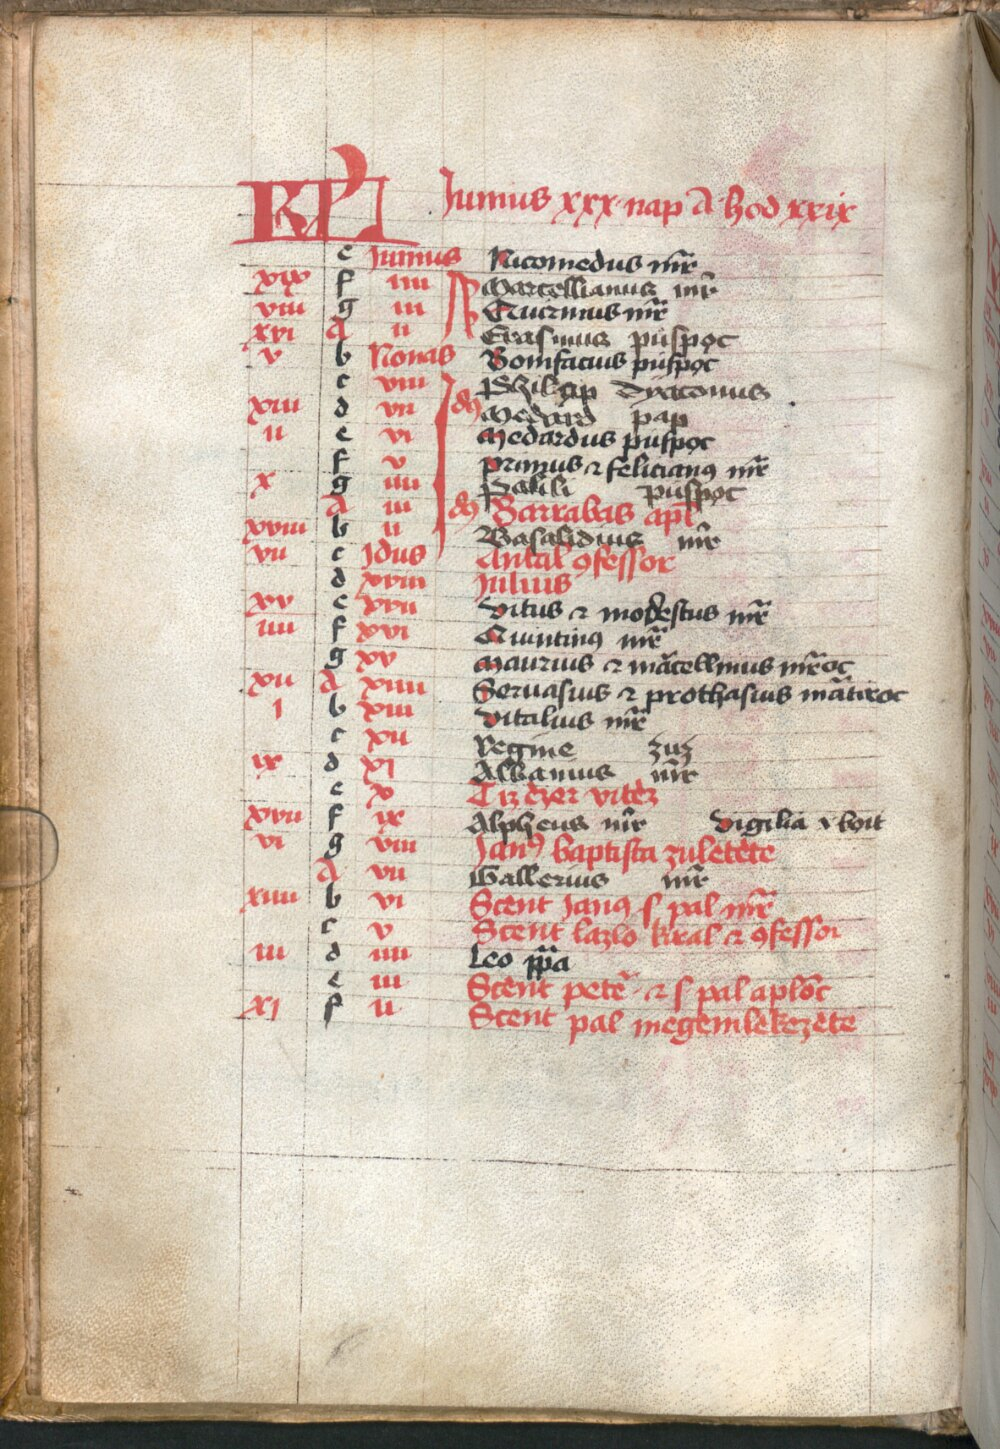 KL Iunius xxx nap A hod xxix
e Iunius Nicomedus mr̄
xix f iiii Marcellianus mr̄
viii g iii Quirinus mr̄
xvi A ii Erasmus puspøc
v b Nonas Bonifacius puspøc
c viii Philøp dyaconus
xiii d vii Medard pap
ii e vi Medardus puspøc
f v primus ⁊ felicianꝯ mr̄
x g iiii puspøc
A iii Barrabas apl̄
xviii b ii Basalidius mr̄
vii c Idus Antal ꝯfessor
d xviii Iulius
xv e xvii Vitus ⁊ modestus mr̄
iiii f xvi Quintinꝯ mr̄
g xv Maurius ⁊ mācellinus mr̄oc
xii A xiiii Seruasius ⁊ prothasius mātiroc
i b xiii Vitalius mr̄
c xii Regine zuz
ix d xi Albanius mr̄
e x Tiz ezer vitez
xvii f ix Alpheus mr̄ Vigilia ⁊ boit
vi g viii Janꝯ baptista zuletete
A vii Gallerius mr̄
xiiii b vi Scent Janꝯ s pal mr̄
c v Scent lazlo kiral ⁊ ꝯfessor
iii d iiii Leo ppa
e iii Scent petē ⁊ s pal aplōc
xi f ii Scent pal megemlekezete